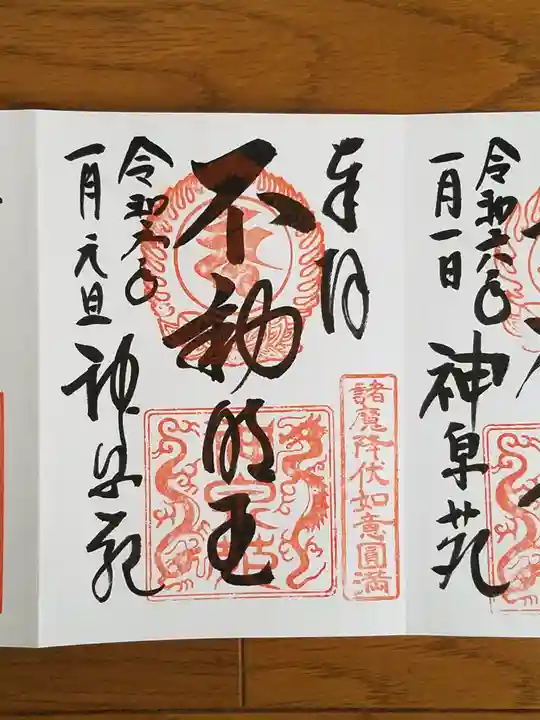 令和六年
一月一日
神泉苑
奉拝
不動明王
諸魔降伏如意圓満
令和六年
一月元旦
神泉苑